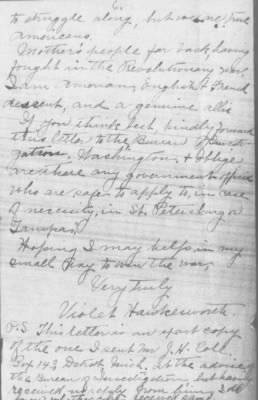 to struggle along, but we are true
Americans.
Mother's people far back having
fought in the Revolutionary war,
I am American, English & French
descent, and a genuine allie
If you think best, kindly forward
this letter to the Bureau of Investi-
gation, Washington, & oblige
are there any government officials
who are safe to apply to, in case
of necessity, in St. Petersburg or
Tampa?
Hoping I may help in my
small way to win the war,
Very truly
Violet Hawkesworth.
P.S. This letter is an exact copy
of the one I sent Mr. J. H. Cole
Box 143 Detroit Mich. at the advice of
the Bureau of Investigation, but having
received no reply from him, I do
received same.